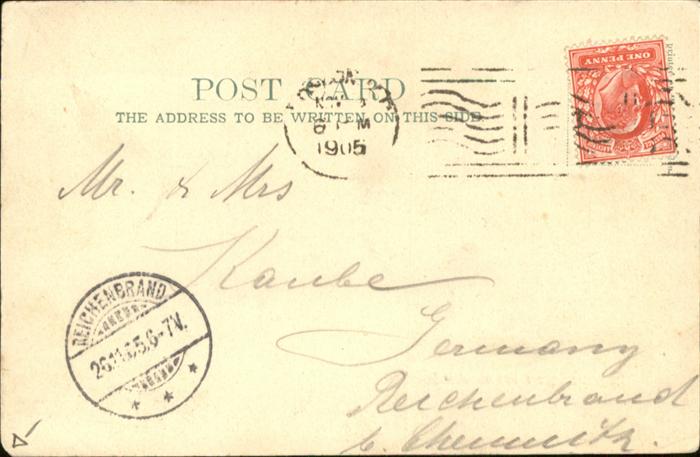 ONE PENNY
POST CARD
THE ADDRESS TO BE WRITTEN ON THIS SIDE.
1905
Mr. & Mrs
Kaube
REICHENBRAND
26.11.05.6-7V.
Germany
Reichenbrand
b. Chemnitz.